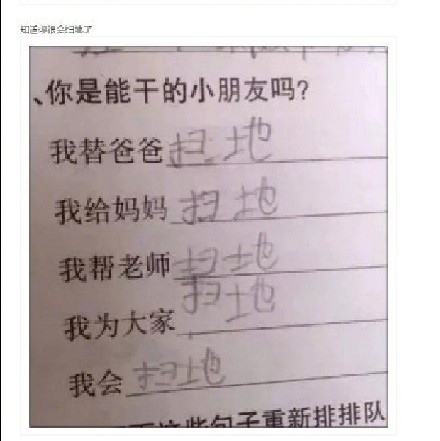 知道你很会扫地了
、你是能干的小朋友吗?
我替爸爸扫地
我给妈妈扫地
我帮老师扫地
我为大家扫地
我会扫地
这些句子重新排排队